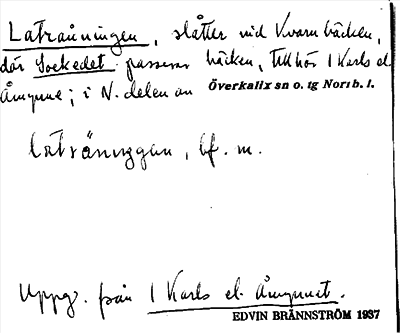 Latraånningen, slåtter vid Kvarnbäcken,
där Sockedet passerar bäcken, tillhör 1 Karls el.
Åmynne; i N. delen av Överkalix sn o. tg Norrb. l.
latränıggan, bf. m.
Uppg. från 1 Karls el. Åmynnet.
EDVIN BRÄNNSTRÖM 1937